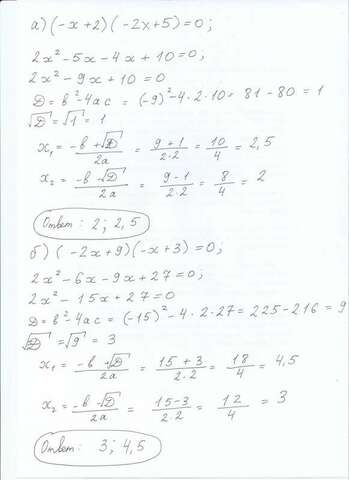 а) (-x+2)(-2x+5)=0;
2x²-5x-4x+10=0;
2x²-9x+10=0
D=b²-4ac = (-9)²-4·2·10 = 81-80 = 1
√D = √1 = 1
x₁ = (-b+√D)/2a = (9+1)/2·2 = 10/4 = 2,5
x₂ = (-b-√D)/2a = (9-1)/2·2 = 8/4 = 2
Ответ: 2; 2,5
б) (-2x+9)(-x+3)=0;
2x²-6x-9x+27=0;
2x²-15x+27=0
D=b²-4ac = (-15)²-4·2·27 = 225-216 = 9
√D = √9 = 3
x₁ = (-b+√D)/2a = (15+3)/2·2 = 18/4 = 4,5
x₂ = (-b-√D)/2a = (15-3)/2·2 = 12/4 = 3
Ответ: 3; 4,5